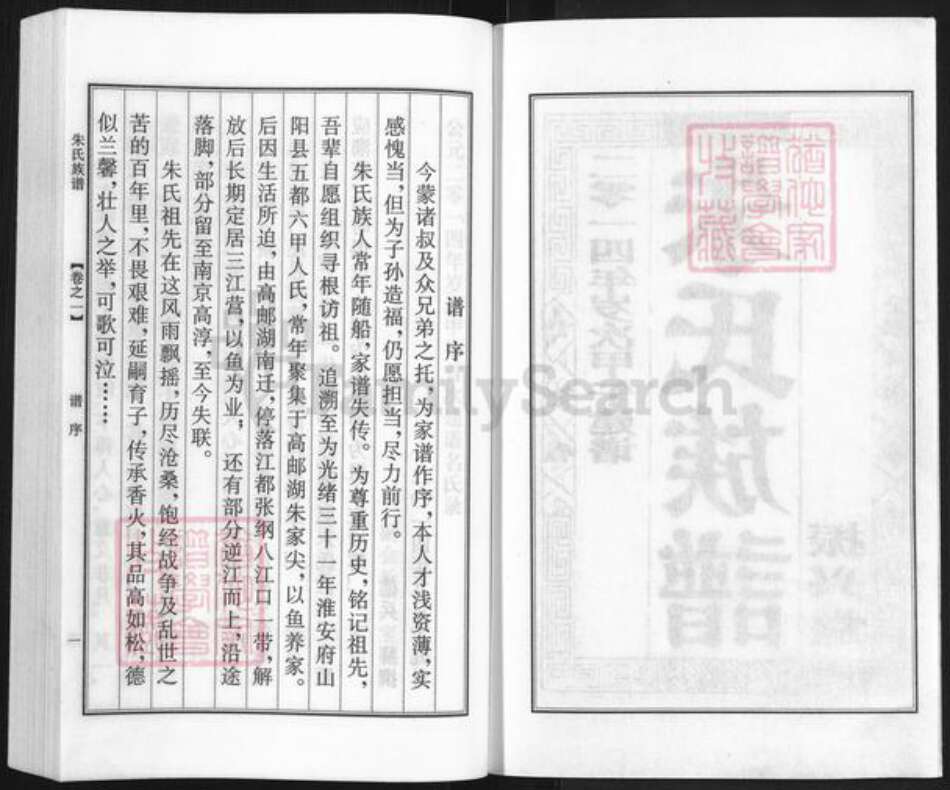 谱序
今蒙诸叔及众兄弟之托，为家谱作序，本人才浅资薄，实
感愧当，但为子孙造福，仍愿担当，尽力前行。
朱氏族人常年随船，家谱失传。为尊重历史，铭记祖先，
吾辈自愿组织寻根访祖。追溯至为光绪三十一年淮安府山
阳县五都六甲人氏，常年聚集于高邮湖朱家尖，以鱼养家。
后因生活所迫，由高邮湖南迁，停落江都张纲八江口一带，解
放后长期定居三江营，以鱼为业，还有部分逆江而上，沿途
落脚，部分留至南京高淳，至今失联。
朱氏祖先在这风雨飘摇，历尽沧桑，饱经战争及乱世之
苦的百年里，不畏艰难，延嗣育子，传承香火，其品高如松，德
似兰馨，壮人之举，可歌可泣……
朱氏族谱
【卷之一】
谱序
一
FamilySearch
氏族譜